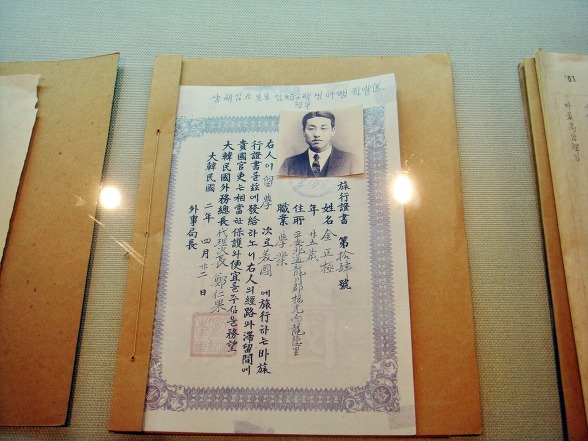 旅行證書 第拾 號
姓名 金正極
年 廿五歲
住所 平安北道龍川郡楊光面龍 里
職業 學業
右人이 留學 次로 美國 에旅行하는바旅
行證書를玆에發給하노니右人의經路와滯留間에
貴國官吏는相當한保護와便宜를주심을務望
大韓民國外務總長代理次長 鄭仁果
大韓民國 二年 四月 日
外事局長